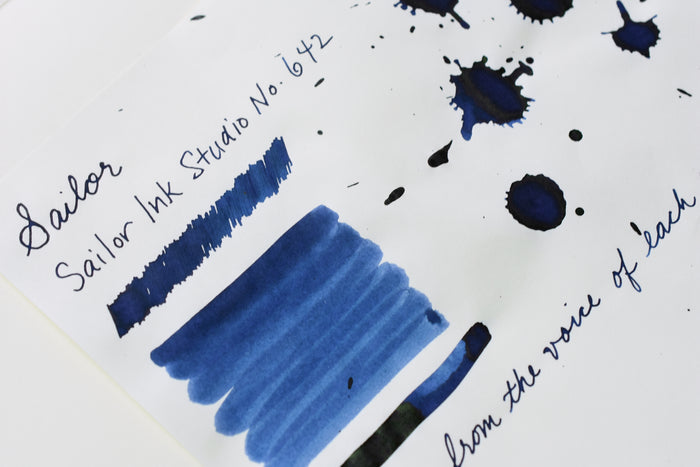 Sailor
Sailor Ink Studio No. 642
from the voice of each